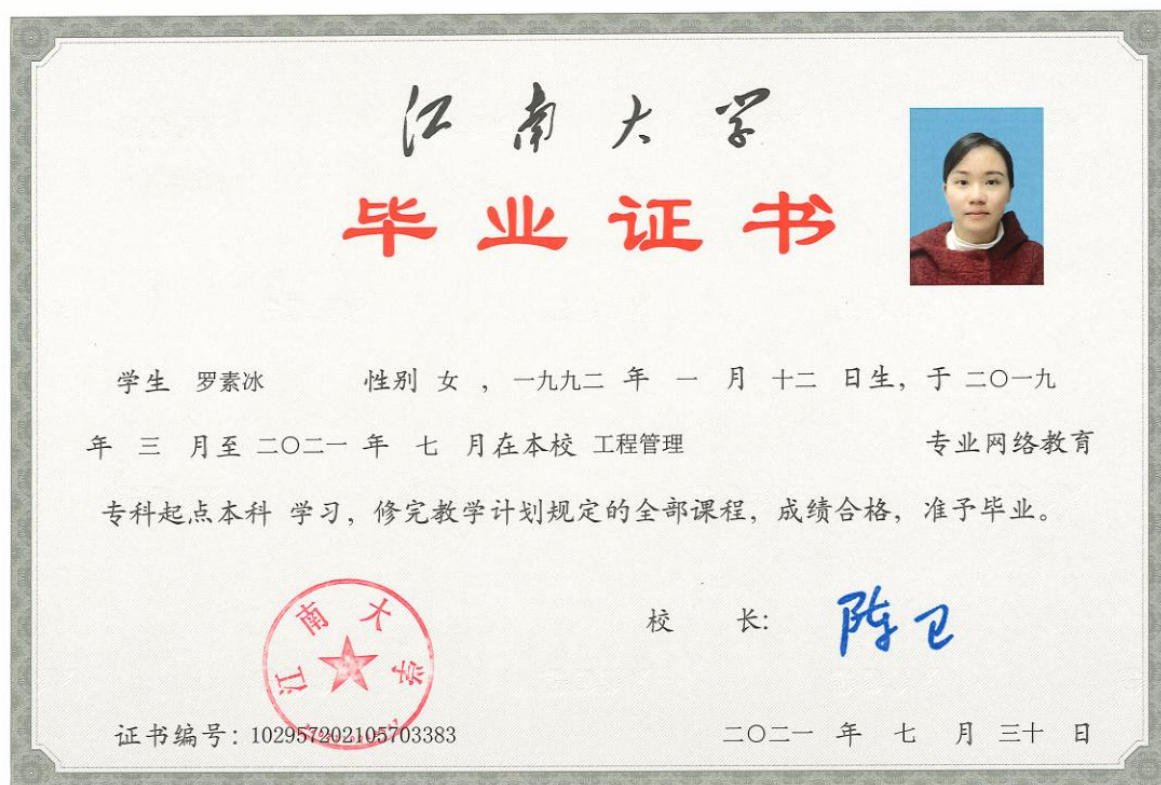 江南大学
毕业证书
学生 罗素冰 性别 女 ，一九九二 年 一 月 十二 日生，于 二〇一九
年 三 月至 二〇二一 年 七 月在本校 工程管理 专业网络教育
专科起点本科 学习，修完教学计划规定的全部课程，成绩合格，准予毕业。
校 长：陈卫
江南大学
证书编号：102957202105703383
二〇二一 年 七 月 三十 日